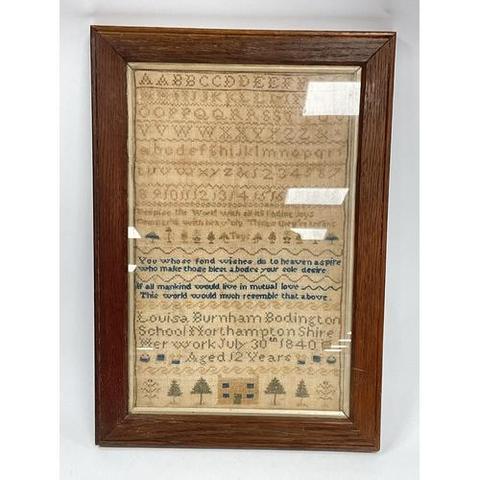 AABBCCDDEEF
OOPPQQRRSS
VVWWXXYYZZ&
abcdefghijklmnopqr
tuvwxyz&12345
9 10 11 12 13 14 15 16
Despise the World with all its fading joys
Toys
You whose fond wishes do to heaven aspire
who make those blest abodes your sole desire
If all mankind would live in mutual love
This world would much resemble that above
Louisa Burnham Bodington
School Northampton Shire
Her work July 30th 1840
Aged 12 Years